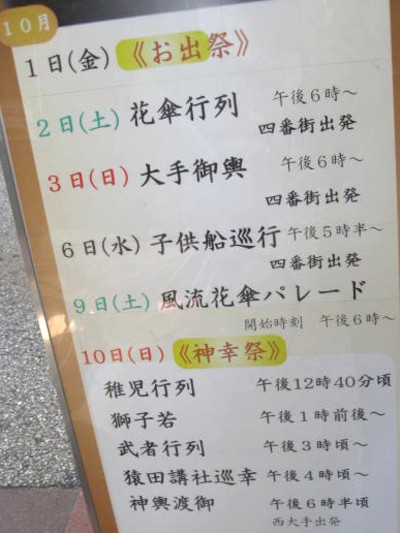 10月
1日(金)《お出祭》
2日(土)花傘行列 午後6時～
四番街出発
3日(日)大手御輿 午後6時～
四番街出発
6日(水)子供船巡行 午後5時半～
四番街出発
9日(土)風流花傘パレード
開始時刻 午後6時～
10日(日)《神幸祭》
稚児行列 午後12時40分頃
獅子若 午後1時前後～
武者行列 午後3時頃～
猿田講社巡幸 午後4時頃～
神輿渡御 午後6時半頃
西大手出発